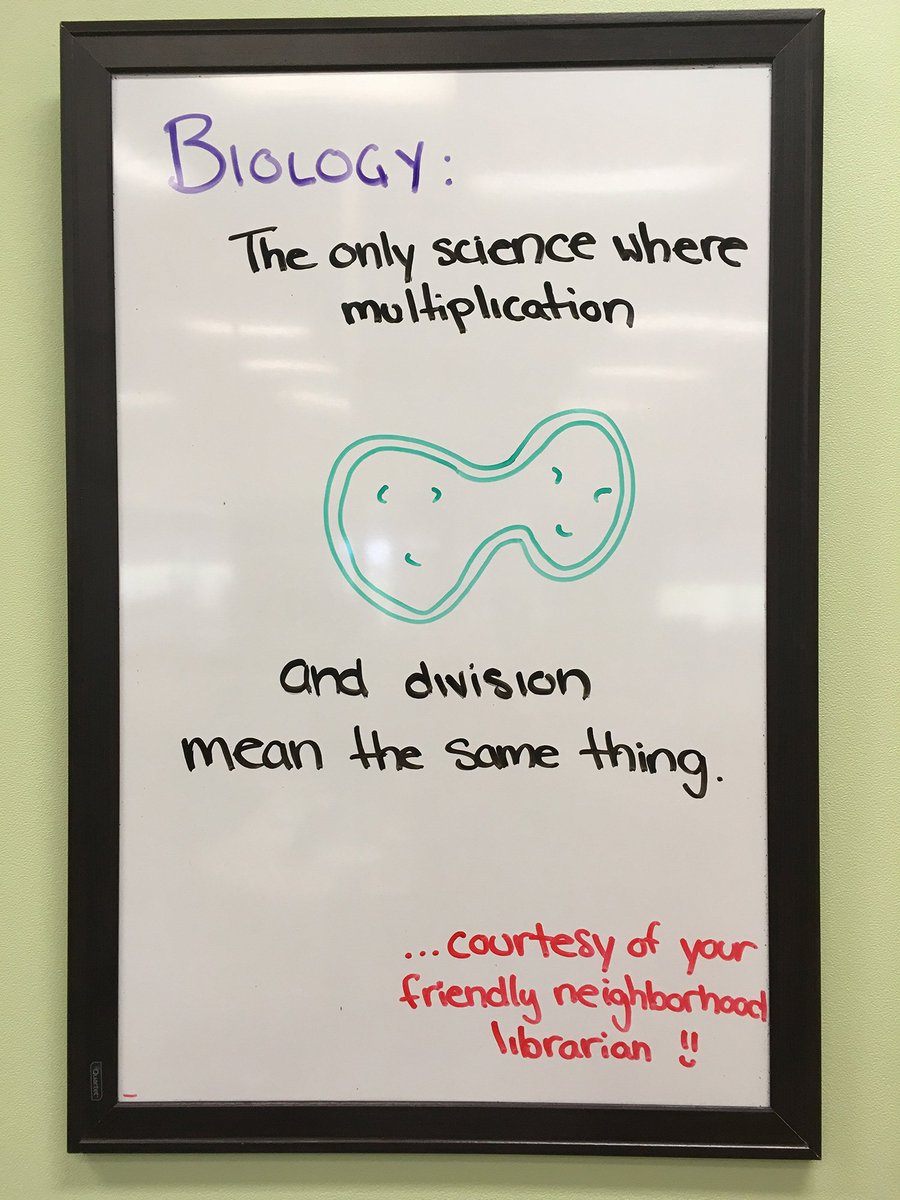 BIOLOGY:
The only science where
multiplication
and division
mean the same thing.
...courtesy of your
friendly neighborhood
librarian !!
Quartet